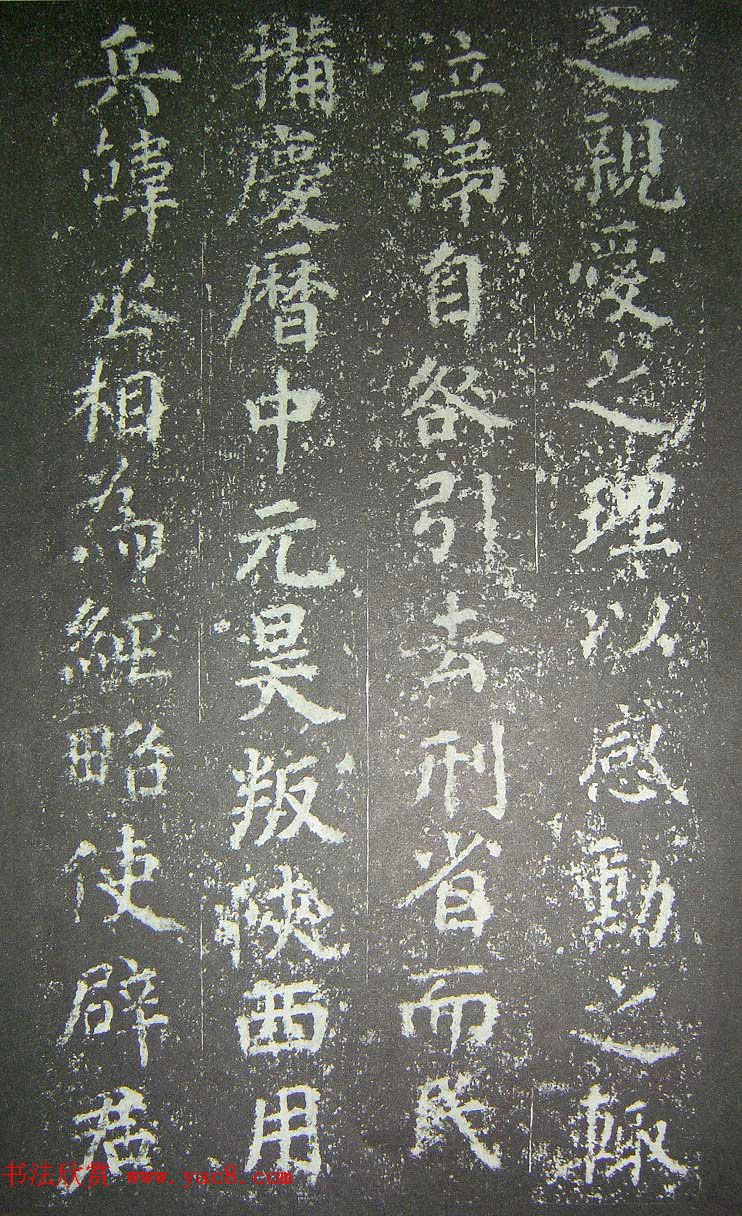 之親愛之理以感動之輙
泣涕自咎引去刑省而民
犕慶曆中元昊叛陝西用
兵韓丞相為經略使辟君
书法欣赏 www.yac8.com